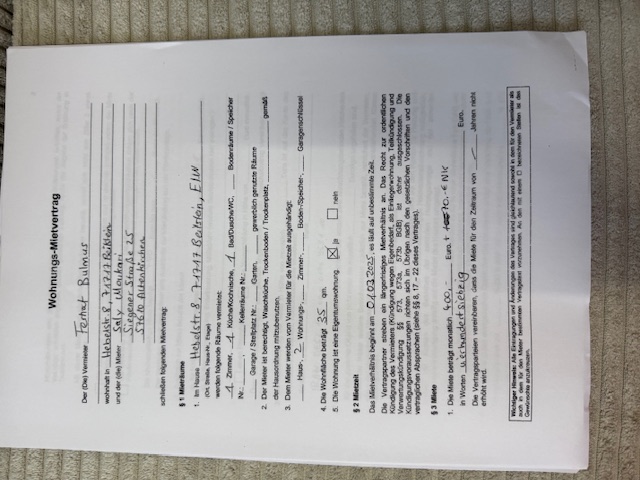 Wohnungs-Mietvertrag
Der (Die) Vermieter Ferhat Bulmus
wohnhaft in Hebelstr. 8, 71717 Beilstein
und der (die) Mieter Saly Moukari
Siegener Straße 25
57610 Altenkirchen
schließen folgenden Mietvertrag:
§ 1 Mieträume
1. Im Hause Hebelstr. 8, 71717 Beilstein,
(Ort, Straße, Haus-Nr., Etage)
werden folgende Räume vermietet:
1 Zimmer, 1 Küche/Kochnische, 1 Bad/Dusche/WC, Bodenräume / Speicher
Nr.: , Kellerräume Nr.:
Garage / Stellplatz Nr.: Garten, gewerblich genutzte Räume
2. Der Mieter ist berechtigt, Waschküche, Trockenboden / Trockenplatz, gemäß
der Hausordnung mitzubenutzen.
3. Dem Mieter werden vom Vermieter für die Mietzeit ausgehändigt:
Haus-, 2 Wohnungs-, Zimmer-, Boden-/Speicher-, Garagenschlüssel
4. Die Wohnfläche beträgt 35 qm.
5. Die Wohnung ist eine Eigentumswohnung. ☒ ja ☐ nein
§ 2 Mietzeit
Das Mietverhältnis beginnt am 01.03.2025, es läuft auf unbestimmte Zeit.
Die Vertragspartner streben ein längerfristiges Mietverhältnis an. Das Recht zur ordentlichen
Kündigung des Vermieters (Kündigung wegen Eigenbedarf, als Einliegerwohnung, Teilkündigung und
Verwertungskündigung §§ 573, 573a, 573b BGB) ist daher ausgeschlossen. Die
Kündigungsvoraussetzungen richten sich im Übrigen nach den gesetzlichen Vorschriften und den
vertraglichen Absprachen (siehe §§ 8, 17 – 22 dieses Vertrages).
§ 3 Miete
1. Die Miete beträgt monatlich 400,- Euro, + 70,-€ NK
in Worten vierhundertsiebzig Euro.
Die Vertragsparteien vereinbaren, dass die Miete für den Zeitraum von Jahren nicht
erhöht wird.
Wichtiger Hinweis: Alle Eintragungen und Änderungen des Vertrages sind gleichlautend sowohl in dem für den Vermieter als
auch in dem für den Mieter bestimmten Vertragstext vorzunehmen. An den mit einem ☐ bezeichneten Stellen ist das
Gewünschte anzukreuzen.